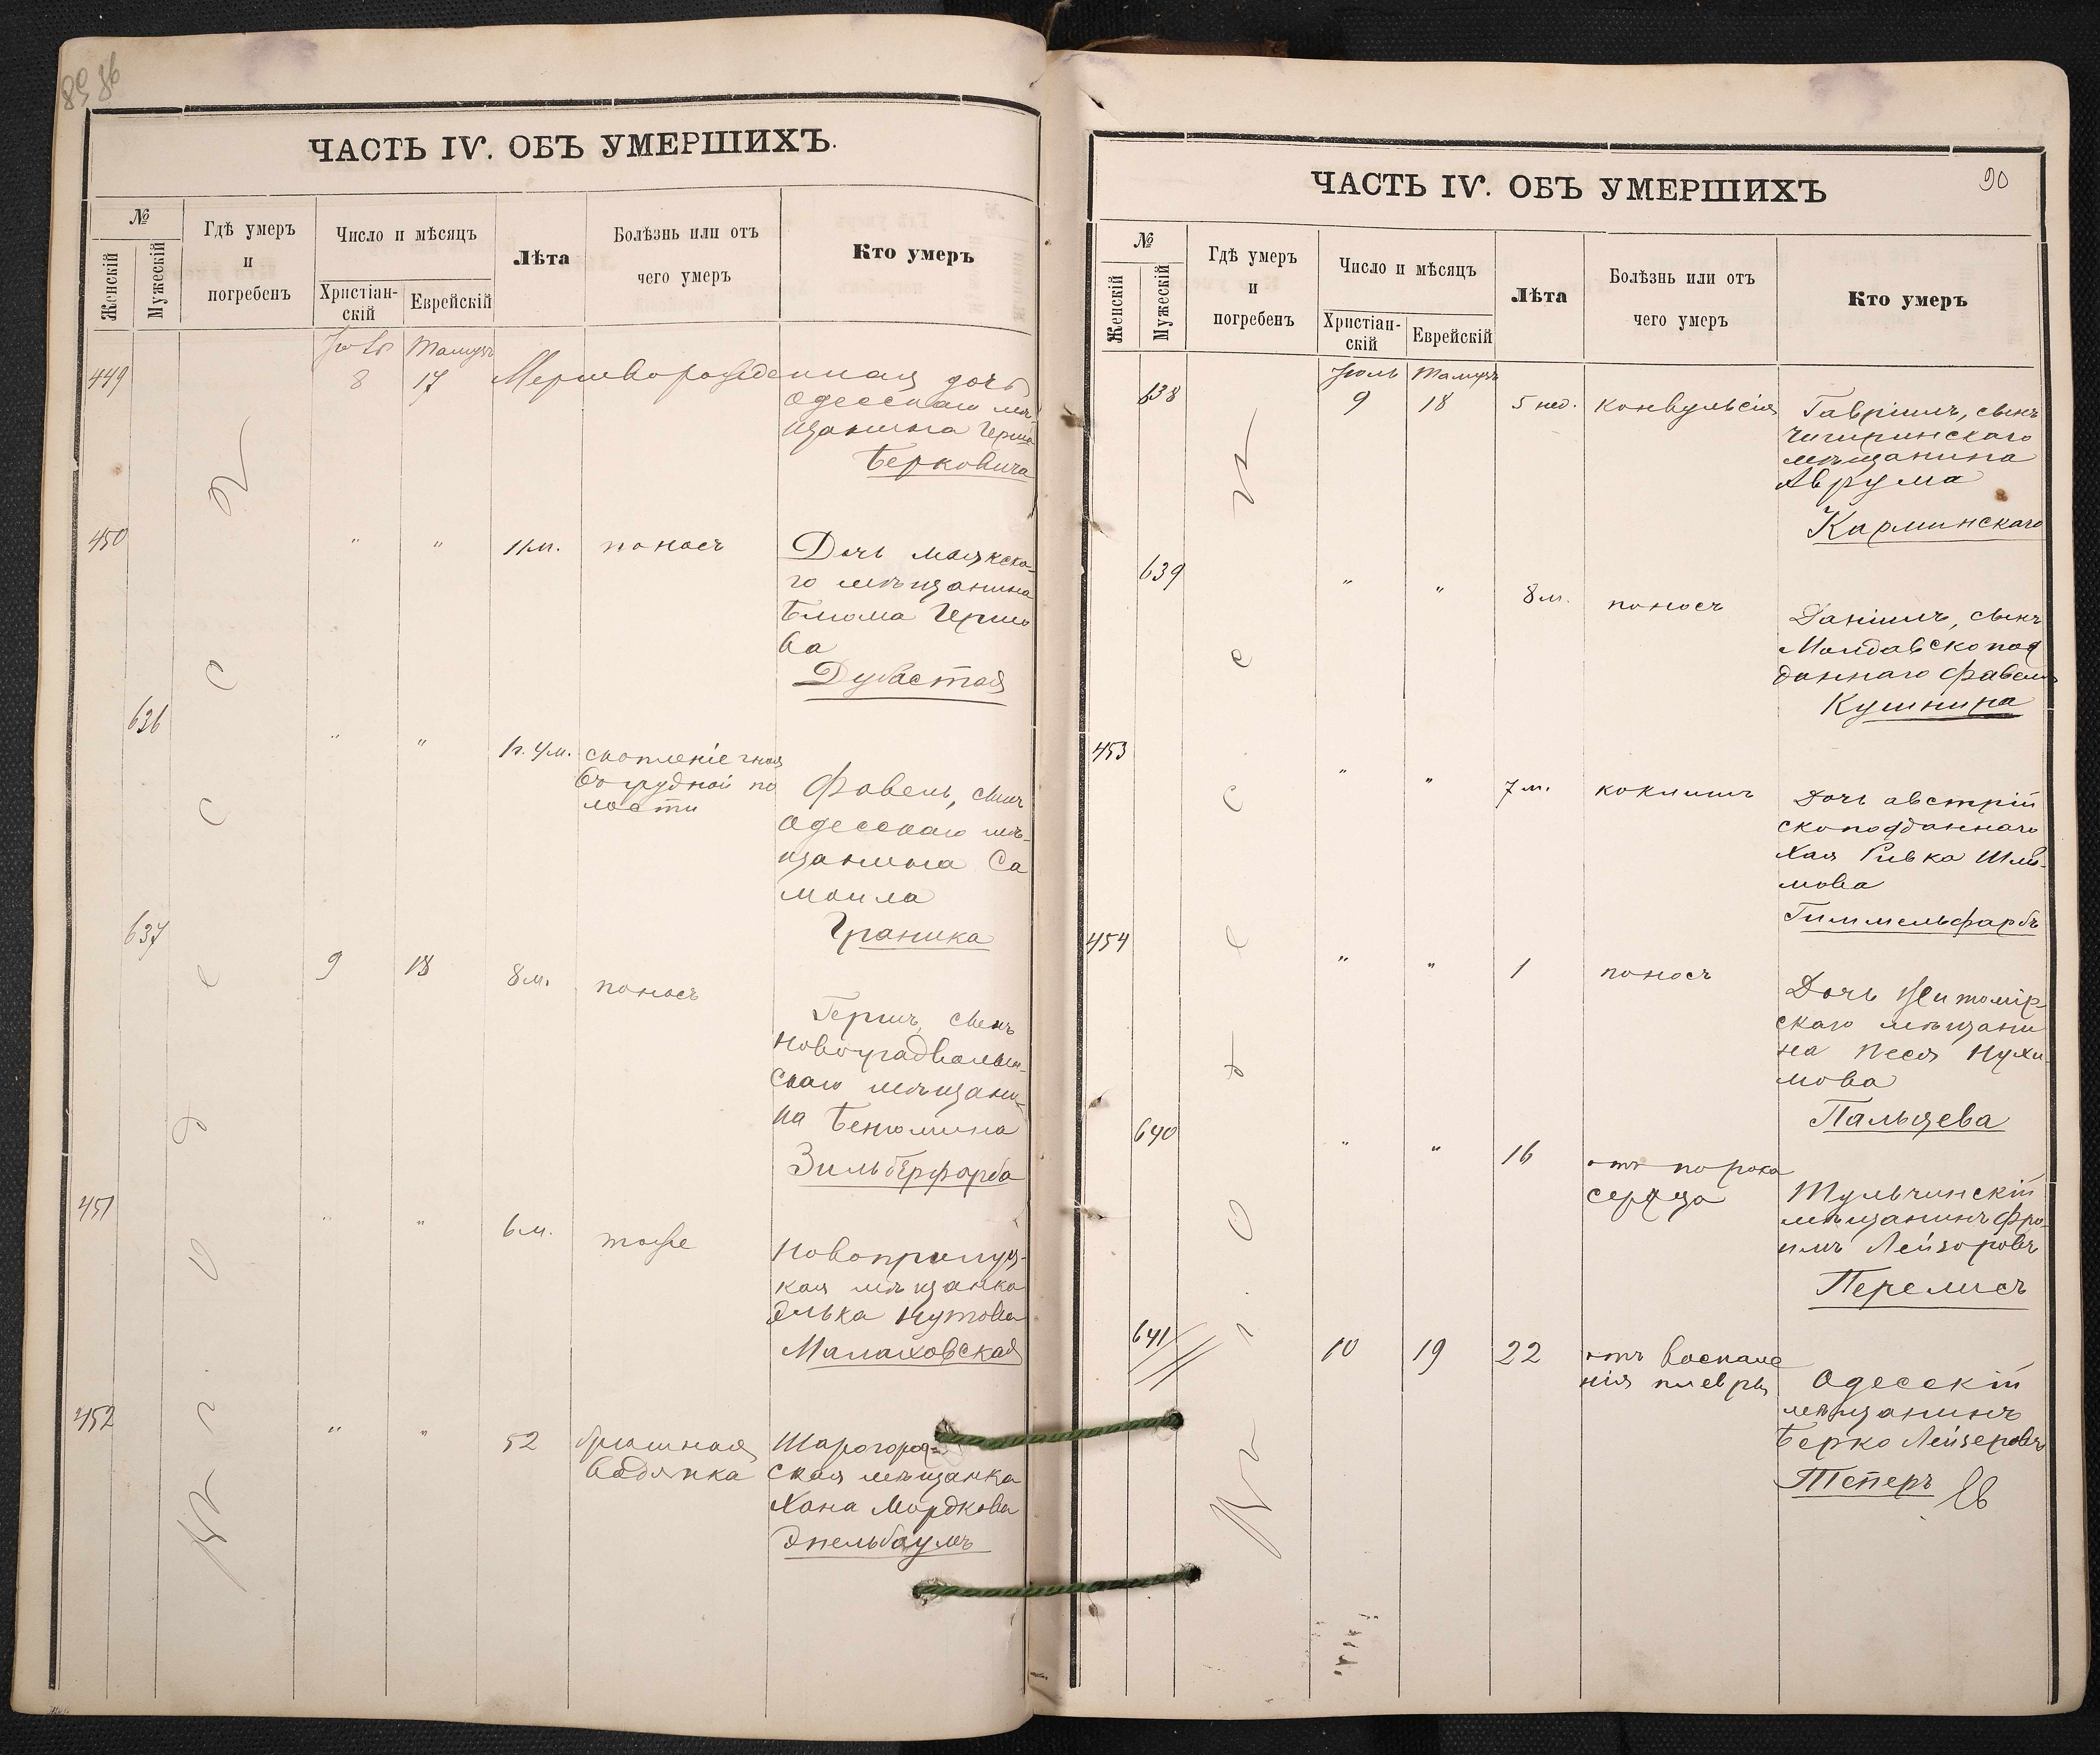 89 86
ЧАСТЬ IV. ОБЪ УМЕРШИХЪ.
№
Женскій
Мужескій
Гдѣ умеръ
и
погребенъ
Число и мѣсяцъ
Христіан-
скій
Еврейскій
Лѣта
Болѣзнь или отъ
чего умеръ
Кто умеръ
Въ г. Одессѣ
Іюль Тамузъ
449 8 17 Мертворожденная дочь
Одесскаго мѣ-
щанина Герша
Берковича
450 " " 11 м. поносъ Дочь маякска-
го мѣщанина
Блюма Гершо
ва
Дубастая
636 " " 1 г. 4 м. скопленіе гноя
въ грудной по
лости
Фавель, сынъ
Одесскаго мѣ-
щанина Са
моила
Граника
637 9 18 8 м. поносъ
Гершъ, сынъ
Новоградволын-
скаго мѣщани-
на Бенюмина
Зильберфарба
451 " " 6 м. тоже
Новоприлуц-
кая мѣщанка
Элька Нутова
Малаховская
452 " " 52 брюшная
водянка
Шарогород-
ская мѣщанка
Хана Мордкова
Эпельбаумъ
90
ЧАСТЬ IV. ОБЪ УМЕРШИХЪ
№
Женскій
Мужескій
Гдѣ умеръ
и
погребенъ
Число и мѣсяцъ
Христіан-
скій
Еврейскій
Лѣта
Болѣзнь или отъ
чего умеръ
Кто умеръ
Въ г. Одессѣ
Іюль Тамузъ
638 9 18 5 нед. конвульсія Гавріилъ, сынъ
Чигиринскаго
мѣщанина
Аврума
Карминскаго
639 " " 8 м. поносъ
Даніилъ, сынъ
Молдавскопод
даннаго Фавеля
Кушнира
453 " " 7 м. коклюшъ Дочь австрій
скоподданнаго
Хая Ривка Шлё-
мова
Гиммельфарбъ
454 " " 1 поносъ
Дочь Житомір-
скаго мѣщани
на Песя Нухи-
мова
Пальцева
640 " " 16 отъ порока
сердца
Тульчинскій
мѣщанинъ Фро-
имъ Лейзоровъ
Перелисъ
641 10 19 22 отъ воспале
нія плевры
Одесскій
мѣщанинъ
Берко Лейзеровъ
Теперъ